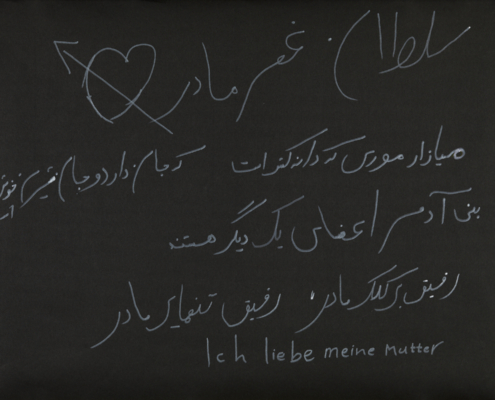 سلطان غم مادر
میازار موری که دانه کش است که جان دارد و جان شیرین خوش است
بنی آدم اعضای یک دیگر هستند
رفیق بی کلک مادر رفیق تنهایی مادر
Ich liebe meine Mutter